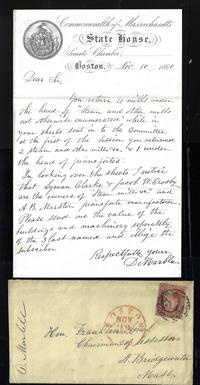 Commonwealth of Massachusetts
State House,
Senate Chamber,
Boston, Nov. 10 1860
Dear Sir,
You return 10 mills under
the head of "steam and other mills
not otherwise enumerated" while in
your sheets sent in to the Committee
at the first of the session you returned
a steam and other mills, & 1 under
the head of pianofortes.
In looking over the sheets I notice
that Lyman Clarke & Jacob W. Crosby
are the owners of "steam mills" and
A. B. Marston pianoforte manufactory.
Please send me the value of the
buildings and machinery separately
of the 3 last named and oblige the
subscriber
Respectfully yours,
D. Marble
D. Marble
BOSTON
NOV
10
Hon. Franklin
Chairman of Assessors
N. Bridgewater
Mass.